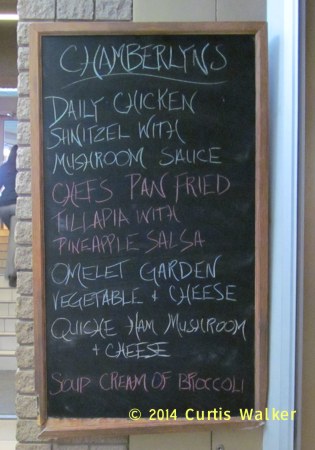 CHAMBERLYNS
DAILY CHICKEN
SHNITZEL WITH
MUSHROOM SAUCE
CHEFS PAN FRIED
TILLAPIA WITH
PINEAPPLE SALSA
OMELET GARDEN
VEGETABLE + CHEESE
QUICHE HAM MUSHROOM
+ CHEESE
SOUP CREAM OF BROCCOLI
© 2014 Curtis Walker